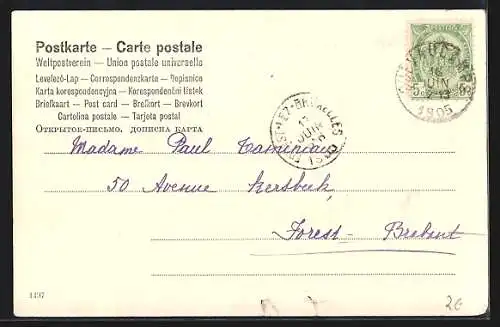 Postkarte – Carte postale
Weltpostverein – Union postale universelle
Levelező-Lap – Correspondenzkarte – Dopisnice
Karta korespondencyjna – Korespondenční lístek
Briefkaart – Post card – Brefkort – Brevkort
Cartolina postale – Tarjeta postal
Открытое-письмо, дописна карта
16
JUIN
1905
5 5
FOREST-LEZ-BRUXELLES
17
JUIN
1905
Madame Paul Taminiaux
50 Avenue Kersbeek,
Forest - Brabant
1497